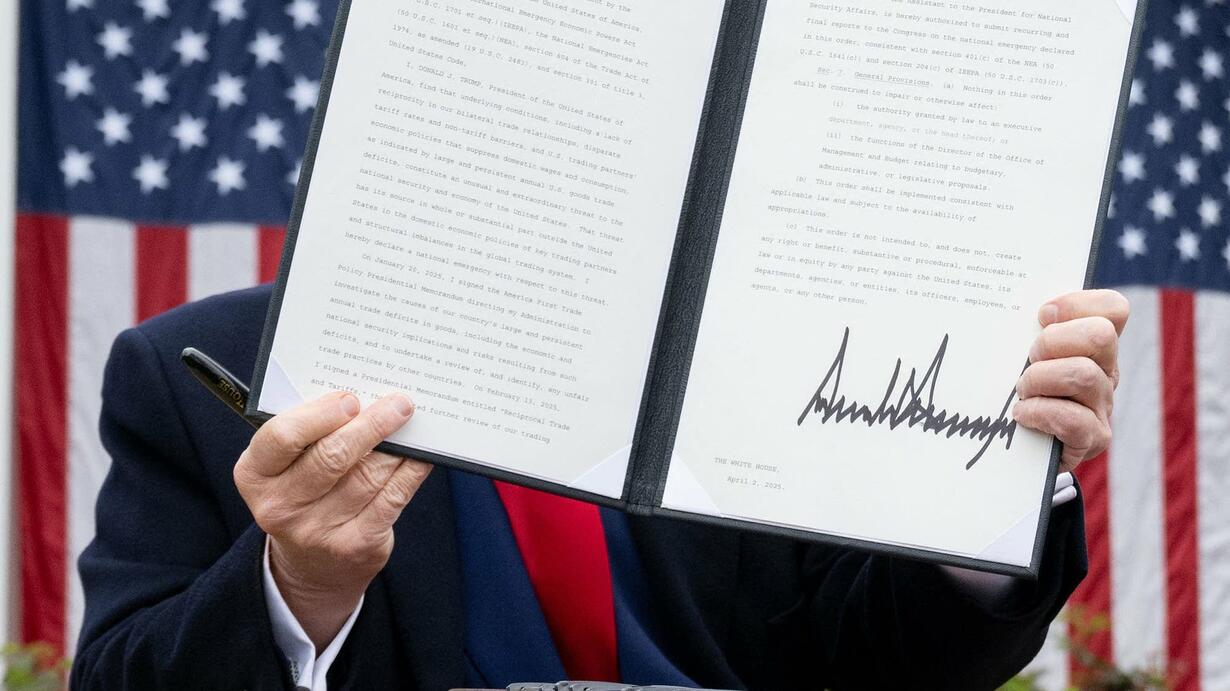 United States of America,
International Emergency Economic Powers Act
(50 U.S.C. 1701 et seq.)(IEEPA), the National Emergencies Act
(50 U.S.C. 1601 et seq.)(NEA), section 604 of the Trade Act of
1974, as amended (19 U.S.C. 2483), and section 301 of title 3,
United States Code,
I, DONALD J. TRUMP, President of the United States of
America, find that underlying conditions, including a lack of
reciprocity in our bilateral trade relationships, disparate
tariff rates and non-tariff barriers, and U.S. trading partners'
economic policies that suppress domestic wages and consumption,
as indicated by large and persistent annual U.S. goods trade
deficits, constitute an unusual and extraordinary threat to the
national security and economy of the United States. That threat
has its source in whole or substantial part outside the United
States in the domestic economic policies of key trading partners
and structural imbalances in the global trading system. I
hereby declare a national emergency with respect to this threat.
On January 20, 2025, I signed the America First Trade
Policy Presidential Memorandum directing my Administration to
investigate the causes of our country's large and persistent
annual trade deficits in goods, including the economic and
national security implications and risks resulting from such
deficits, and to undertake a review of, and identify, any unfair
trade practices by other countries. On February 13, 2025,
I signed a Presidential Memorandum entitled "Reciprocal Trade
and Tariffs," further review of our trading
Assistant to the President for National
Security Affairs, is hereby authorized to submit recurring and
final reports to the Congress on the national emergency declared
in this order, consistent with section 401(c) of the NEA (50
U.S.C. 1641(c)) and section 204(c) of IEEPA (50 U.S.C. 1703(c)).
Sec. 7. General Provisions. (a) Nothing in this order
shall be construed to impair or otherwise affect:
(i) the authority granted by law to an executive
department, agency, or the head thereof; or
(ii) the functions of the Director of the Office of
Management and Budget relating to budgetary,
administrative, or legislative proposals.
(b) This order shall be implemented consistent with
applicable law and subject to the availability of
appropriations.
(c) This order is not intended to, and does not, create
any right or benefit, substantive or procedural, enforceable at
law or in equity by any party against the United States, its
departments, agencies, or entities, its officers, employees, or
agents, or any other person.
THE WHITE HOUSE,
April 2, 2025.